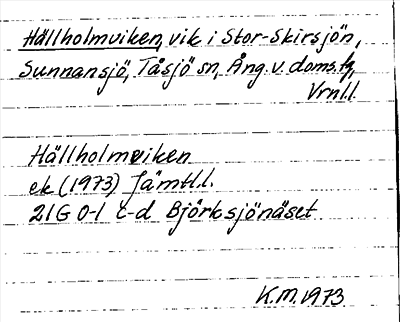 Hällholmviken, vik i Stor-Skirsjön,
Sunnansjö, Tåsjö sn, Ång. v. doms. tg,
Vrnll
Hällholmviken
ek (1973) Jämtl.l.
21G 0-1 c-d Björksjönäset
K.M. 1973